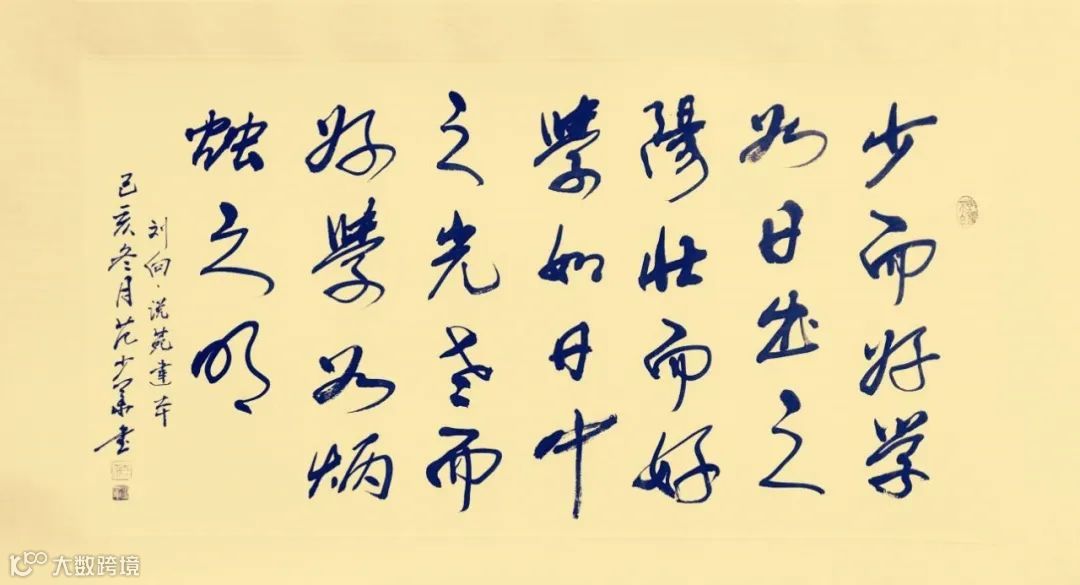 少而好学
如日出之
陽壮而好
學如日中
之光老而
好學如炳
烛之明
刘向·说苑建本
己亥冬月范少書
大数跨境